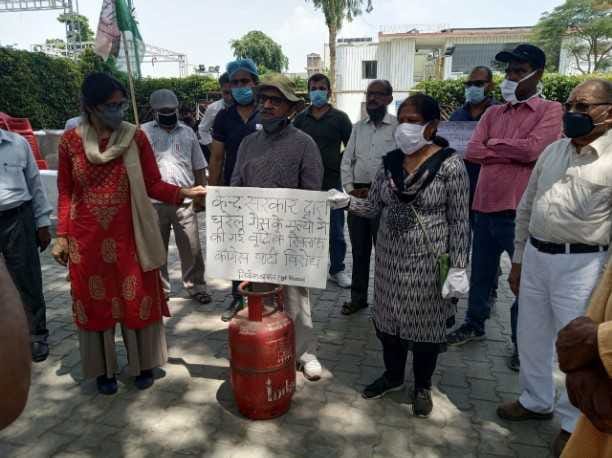 केन्द्र सरकार द्वारा
घरेलू गैस के मूल्यों में
की गई वृद्धि के खिलाफ
कांग्रेस पार्टी विरोध
Indane